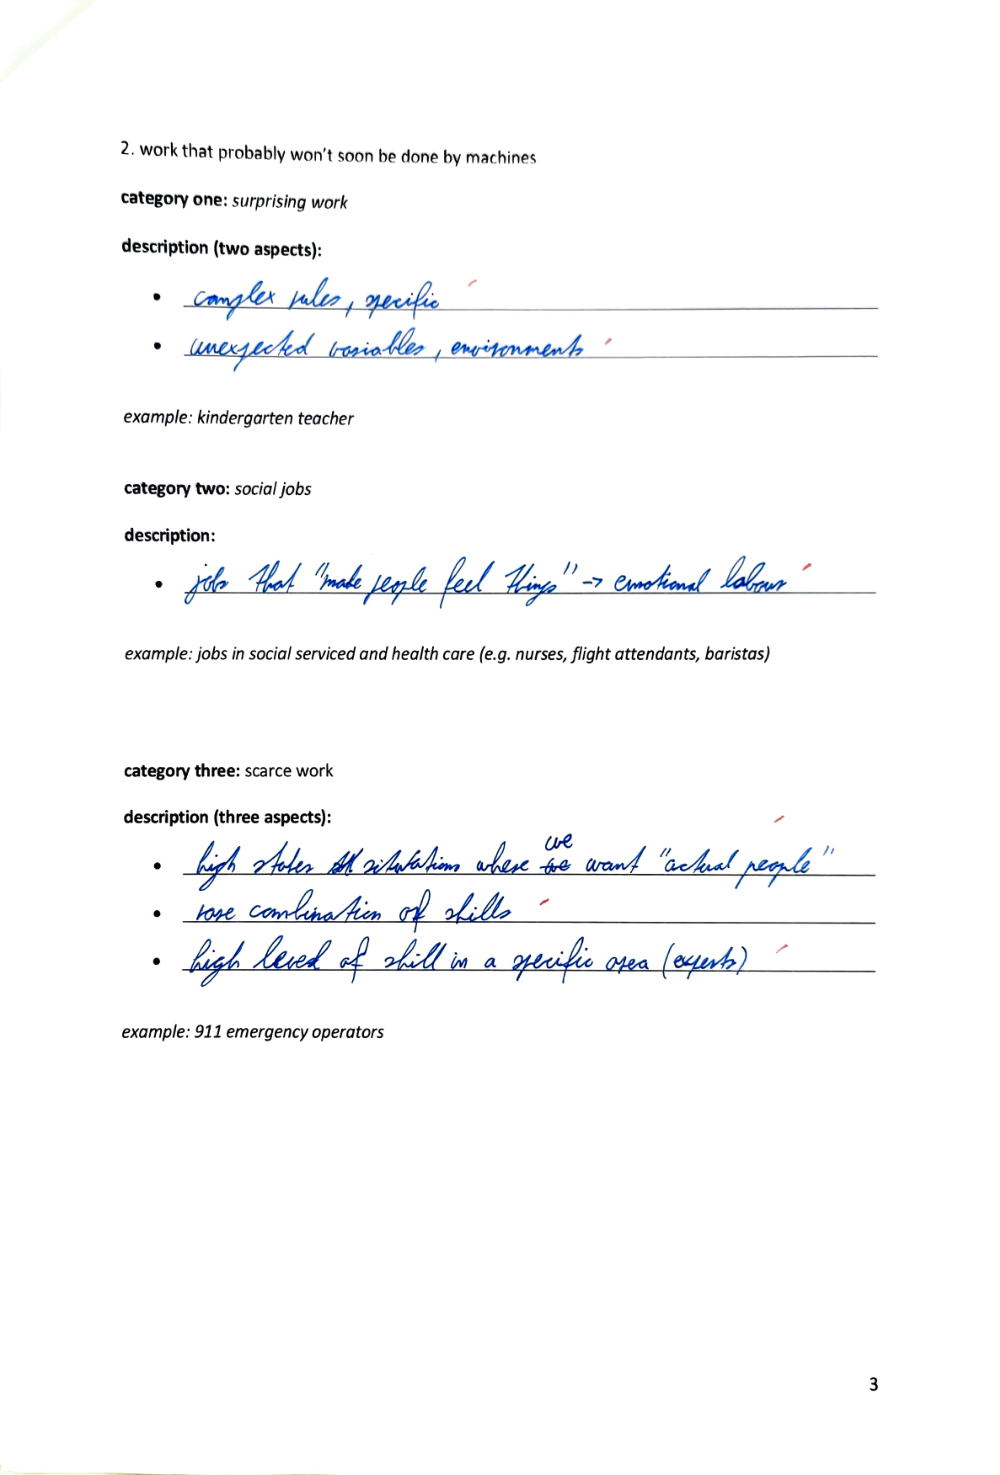 2. work that probably won't soon be done by machines
category one: surprising work
description (two aspects):
• complex rules, specific
• unexpected variables, environments
example: kindergarten teacher
category two: social jobs
description:
• jobs that "make people feel things" -> emotional labour
example: jobs in social serviced and health care (e.g. nurses, flight attendants, baristas)
category three: scarce work
description (three aspects):
we
• high stakes situtations where want "actual people"
• rare combination of skills
• high level of skill in a specific area (experts)
example: 911 emergency operators
3